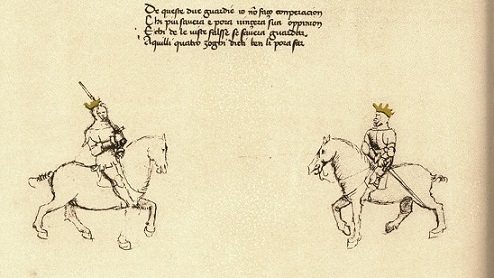 De queste due guardie io nõ faço conperacion
Chi piu savera e pora sua oppinion
E chi de le viste falsse se savera guardar
A quilli quatro zoghi dieti ben li pora far